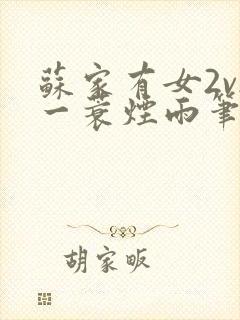 蘇家有女2v
一蓑煙雨筆
胡家畈